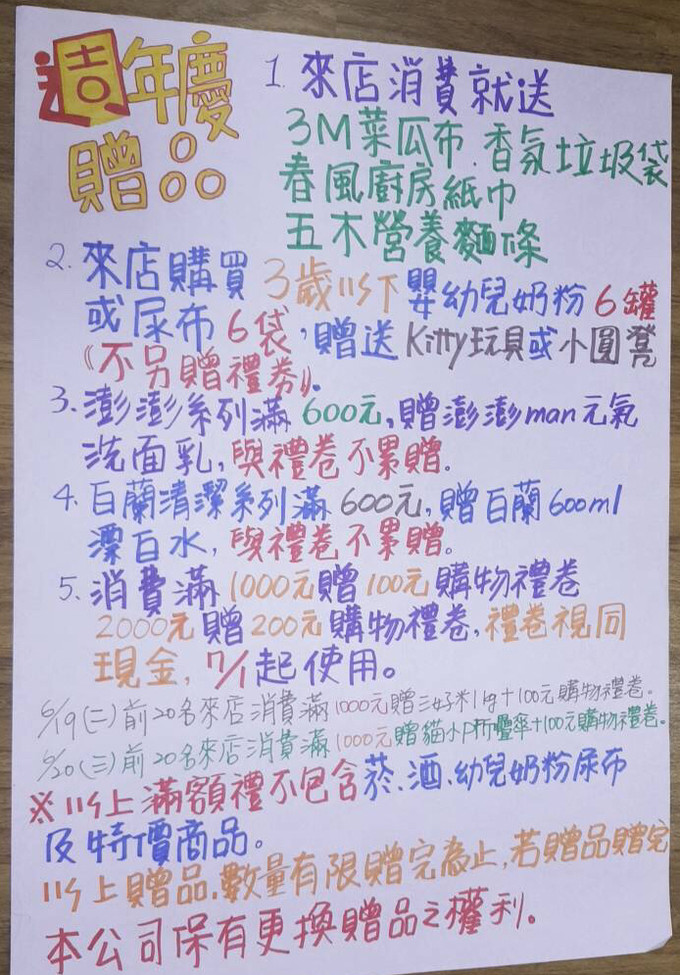 週年慶
贈品
1. 來店消費就送
3M菜瓜布.香氛垃圾袋
春風廚房紙巾
五木營養麵條
2. 來店購買3歲以下嬰幼兒奶粉6罐
或尿布6袋,贈送Kitty玩具或小圓凳
《不另贈禮券》。
3. 澎澎系列滿600元,贈澎澎man元氣
洗面乳,與禮卷不累贈.
4. 白蘭清潔系列滿600元,贈白蘭600ml
漂白水,與禮卷不累贈。
5. 消費滿1000元贈100元購物禮卷
2000元贈200元購物禮卷,禮卷視同
現金,7/1起使用。
6/19(二)前20名來店消費滿1000元贈三好米1kg+100元購物禮卷。
6/20(三)前20名來店消費滿1000元贈貓小P折疊傘+100元購物禮卷。
※以上滿額禮不包含菸、酒、幼兒奶粉尿布
及特價商品。
以上贈品,數量有限贈完為止,若贈品贈完
本公司保有更換贈品之權利。